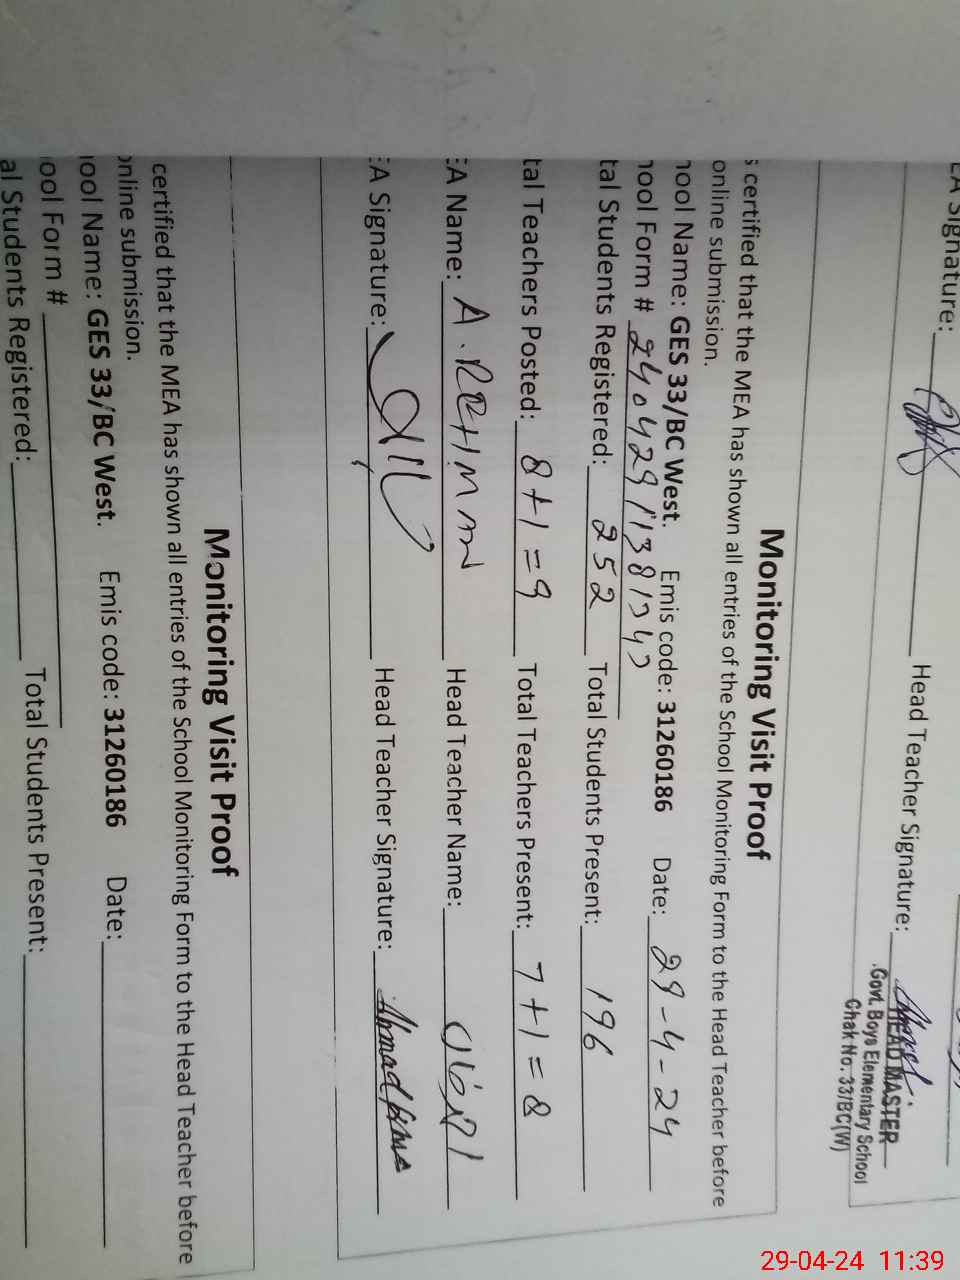 EA Signature: Head Teacher Signature:
HEAD MASTER
Govt. Boys Elementary School
Chak No. 33/BC(W)
Monitoring Visit Proof
s certified that the MEA has shown all entries of the School Monitoring Form to the Head Teacher before
online submission.
hool Name: GES 33/BC West. Emis code: 31260186 Date: 29-4-24
hool Form #
tal Students Registered: 252 Total Students Present: 196
tal Teachers Posted: 8+1=9 Total Teachers Present: 7+1=8
EA Name: Head Teacher Name:
EA Signature: Head Teacher Signature:
Monitoring Visit Proof
certified that the MEA has shown all entries of the School Monitoring Form to the Head Teacher before
online submission.
ool Name: GES 33/BC West. Emis code: 31260186 Date:
ool Form #
al Students Registered: Total Students Present:
29-04-24 11:39